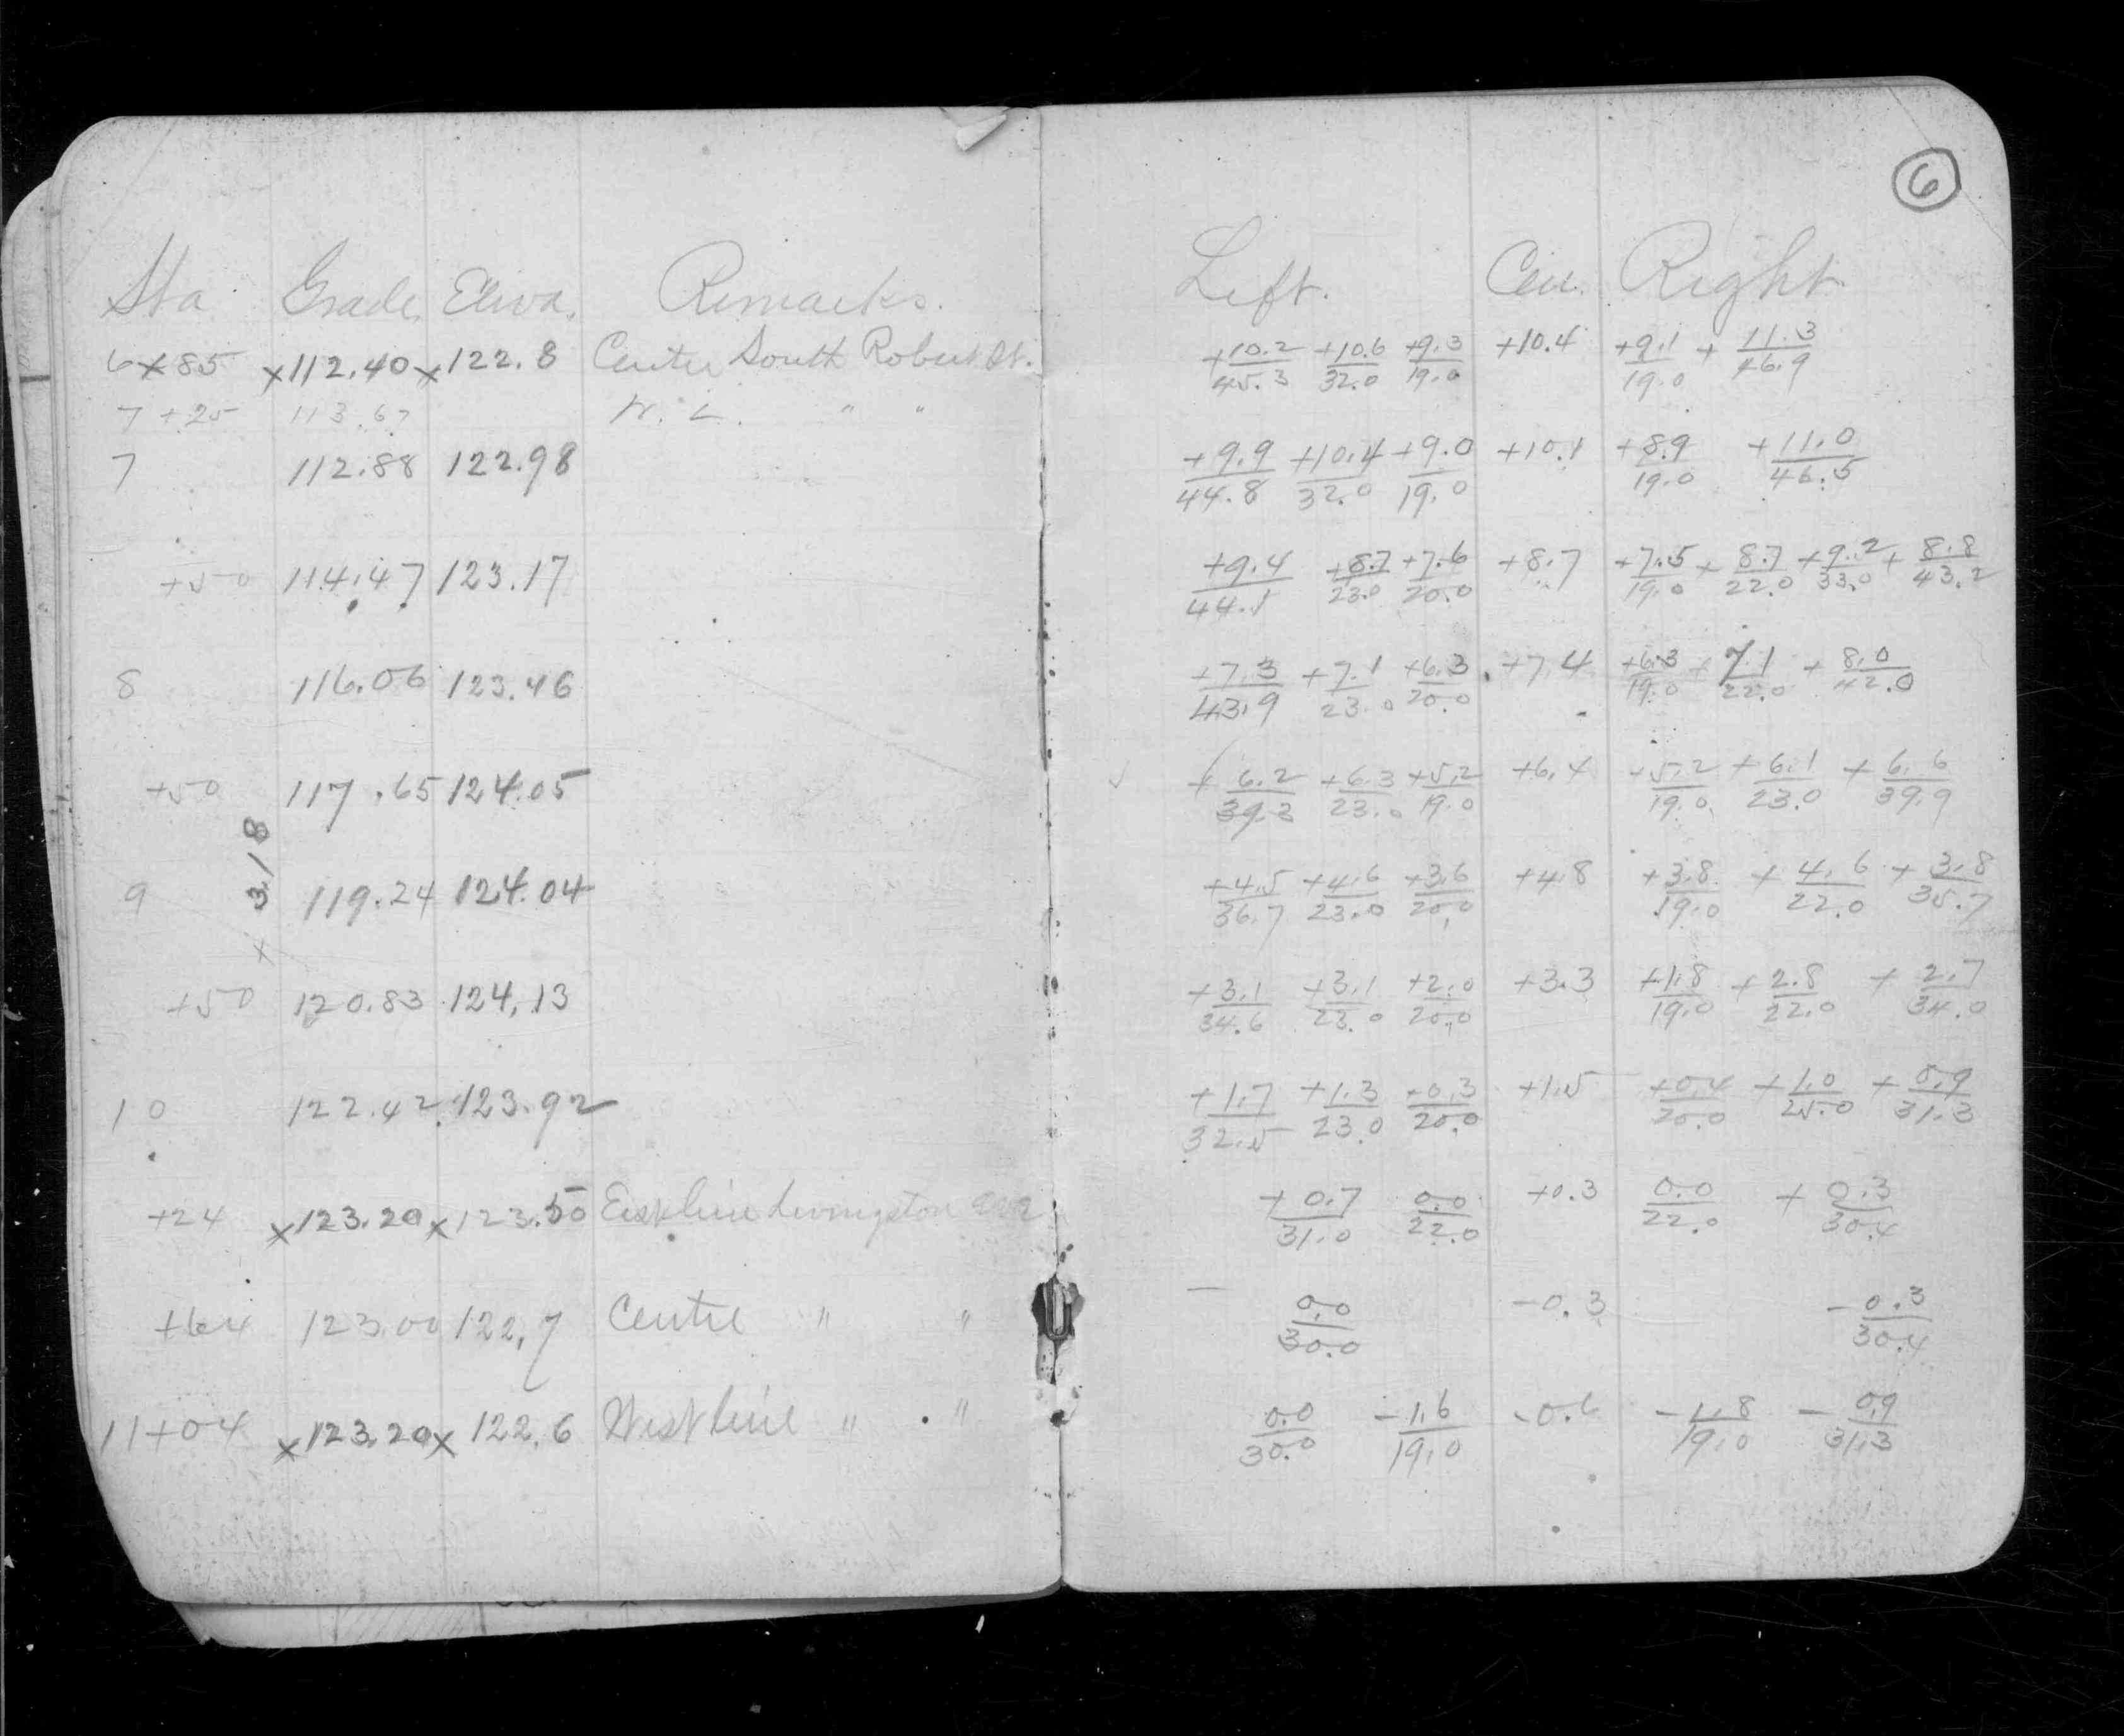 6
Sta Grade Eleva. Remarks. Left. Cen. Right
6+85 x112.40 x122.8 Center South Robert St. +10.2/45.3 +10.6/32.0 +9.3/19.0 +10.4 +9.1/19.0 +11.3/46.9
7+25 113.67 W. L. " "
7 112.88 122.98 +9.9/44.8 +10.4/32.0 +9.0/19.0 +10.1 +8.9/19.0 +11.0/46.5
+50 114.47 123.17 +9.4/44.1 +8.7/23.0 +7.6/20.0 +8.7 +7.5/19.0 +8.7/22.0 +9.2/33.0 +8.8/43.2
8 116.06 123.46 +7.3/43.9 +7.1/23.0 +6.3/20.0 +7.4 +6.3/19.0 +7.1/22.0 +8.0/42.0
+50 117.65 124.05 +6.2/39.3 +6.3/23.0 +5.2/19.0 +6.4 +5.2/19.0 +6.1/23.0 +6.6/39.9
x 3.18
9 119.24 124.04 +4.5/36.7 +4.6/23.0 +3.6/20.0 +4.8 +3.8/19.0 +4.6/22.0 +3.8/35.7
+50 120.83 124.13 +3.1/34.6 +3.1/23.0 +2.0/20.0 +3.3 +1.8/19.0 +2.8/22.0 +2.7/34.0
10 122.42 123.92 +1.7/32.5 +1.3/23.0 +0.3/20.0 +1.5 +0.4/20.0 +1.0/25.0 +0.9/31.3
+24 x123.20 x123.50 East line Livingston Ave +0.7/31.0 0.0/22.0 +0.3 0.0/22.0 +0.3/30.4
+64 123.00 122.7 Centre " " 0.0/30.0 -0.3 -0.3/30.4
11+04 x123.20 x122.6 West line " " 0.0/30.0 -1.6/19.0 -0.6 -1.8/19.0 -0.9/31.3